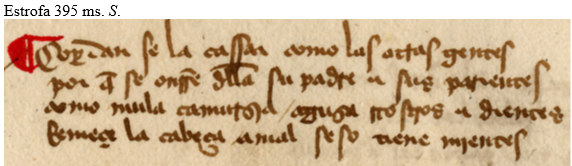 Estrofa 395 ms. S.
Coydan se la cassar como las otras gentes
por q̃ se onrrē dlla su padre e sus parientes
como mula camursia aguza rrostros e dientes
Remeçe la cabeça a mal seso tiene mientes